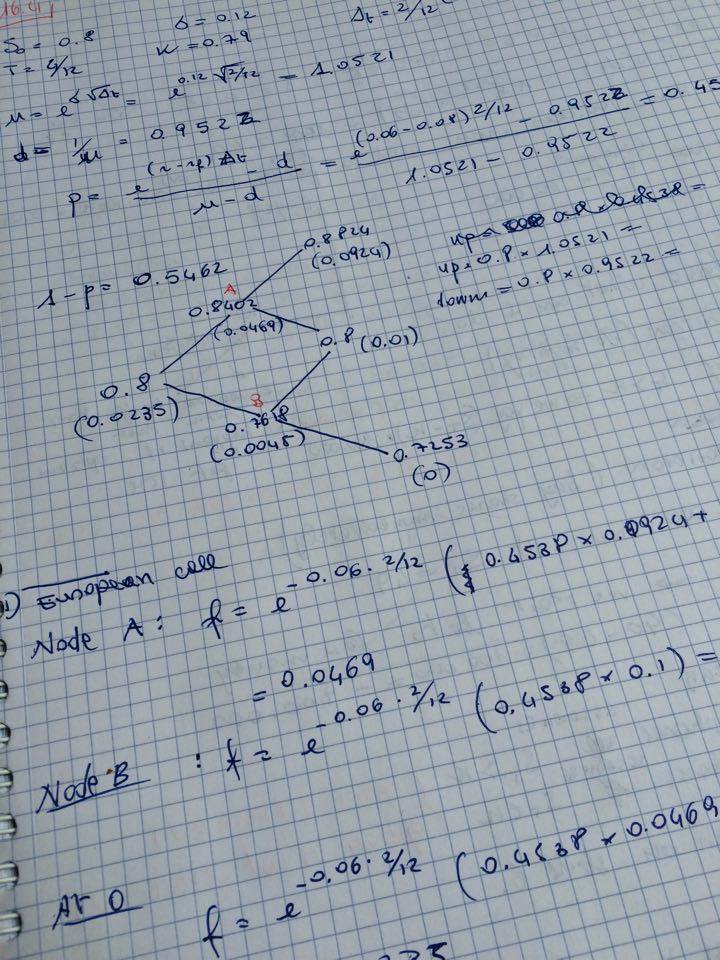 16.4)
S₀ = 0.8 σ = 0.12 Δt = 2/12
T = 4/12 K = 0.79
u = e^σ√Δt = e^0.12√2/12 = 1.0521
d = 1/u = 0.9522
p = e^(r-rf)Δt - d / u - d = e^(0.06-0.08)2/12 - 0.9522 / 1.0521 - 0.9522 = 0.45
1-p = 0.5462
up = 0.8 × 1.0521 =
down = 0.8 × 0.9522 =
0.8824
(0.0924)
A
0.8402
(0.0469)
0.8 (0.01)
0.8
(0.0235)
B
0.7618
(0.0045)
0.7253
(0)
1) European call
Node A: f = e^-0.06·2/12 (0.4538 × 0.0924 +
= 0.0469
Node B : f = e^-0.06·2/12 (0.4538 × 0.1) =
At 0 f = e^-0.06·2/12 (0.4538 × 0.0469